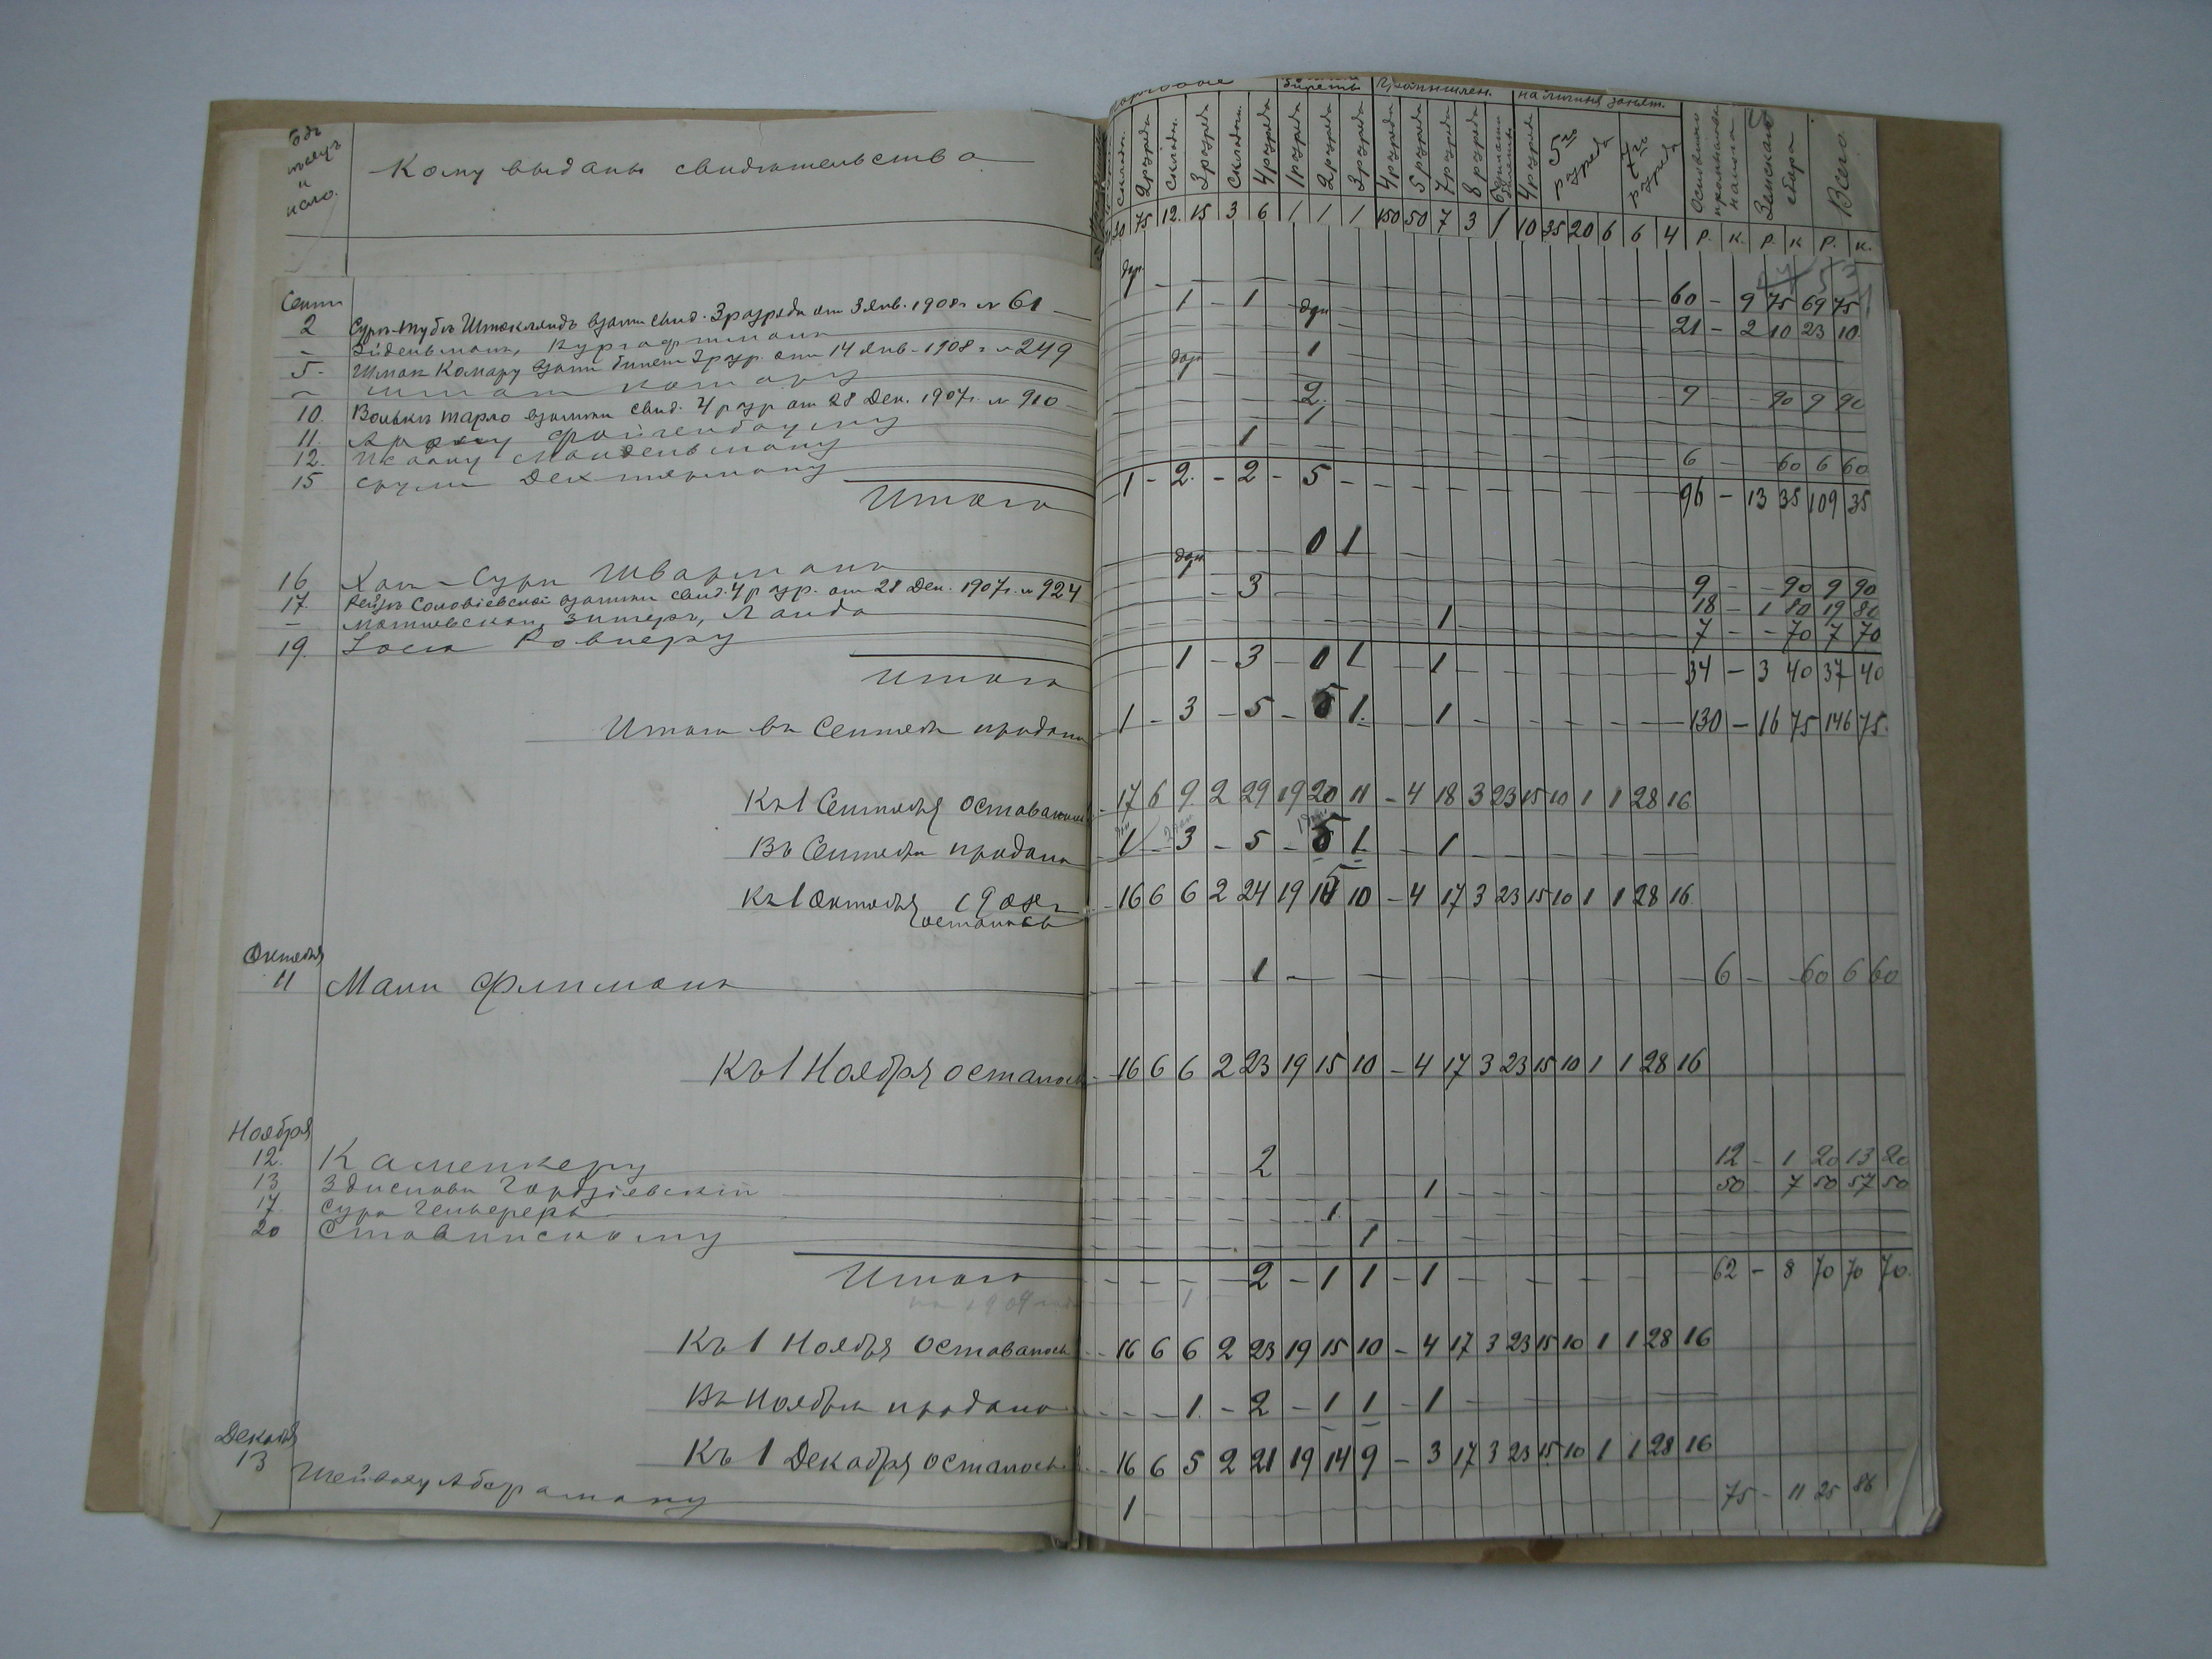 Кому выданы свидѣтельства
и
число.
складн. 2 разряда складн. 3 разряда складн. 4 разряда 1 разряда 2 разряда 3 разряда 4 разряда 5 разряда 7 разряда 8 разряда 4 разряда 5го разряда Основного промысловаго налога Земскаго сбора Всего
билеты промышлен. на личныя занят.
30 75 12. 15 3 6 1 1 1 150 50 7 3 1 10 35 20 6 6 4 Р. К. Р. К Р. К.
Сент
2 взам. свид. 3 разряда от 3 Янв. 1908 г № 61 — 60 – 9 75 69 75
– Зидельманъ, 1 – 1 21 – 2 10 23 10
5 – Шмая Комару взам билет 2 разр. от 14 Янв – 1908 г № 249 1
– Шмая Комару 2. 9 – 90 9 90
10. Волькъ Тарло взамѣн свид. 4 разр от 28 Дек. 1907 г. № 910 1
11. Арону Фойгенбойму 2.
12. Ицкону Мандельману 1
15 Срулю Дехтярману 1 6 – 60 6 60
Итого 1 – 2. – 2 – 5 – – – 96 – 13 35 109 35
16 Хая-Сура Шварцманъ 0 1
17. Рейзѣ Соловіевской взамѣн свид. 4 разр. от 28 Дек. 1907 г. № 924 9 – 90 9 90
– Матиевской, Зингеръ, Ланда 3 – 18 – 1 80 19 80
19. Іосю Ровнеру 1 7 – – 70 7 70
Итого 1 – 3 – 0 1 1 34 – 3 40 37 40
Итого въ Сентябрѣ продано 1 – 3 – 5 – 5 1. 1 – 130 – 16 75 146 75.
Къ 1 Сентября оставалось – 17 6 9 2 29 19 20 11 – 4 18 3 23 15 10 1 1 28 16
Въ Сентябрѣ продано 1 – 3 – 5 – 5 1 1 –
Къ 1 Октября 1908 г – 16 6 6 2 24 19 15 10 – 4 17 3 23 15 10 1 1 28 16
осталось
Октября
11 Мани Флиманъ 1 – 6 – 60 6 60
Къ 1 Ноября осталось – 16 6 6 2 23 19 15 10 – 4 17 3 23 15 10 1 1 28 16
Ноября
12. Каменкеру 2 12 – 1 20 13 20
13 Здиславъ 1 50 – 7 50 57 50
17. Сура 1.
20 Ставинскому 1
Итого 2 – 1 1 – 1 62 – 8 70 70 70.
на 1909 1
Къ 1 Ноября оставалось – 16 6 6 2 23 19 15 10 – 4 17 3 23 15 10 1 1 28 16
Въ Ноябрѣ продано – – – 1. – 2 – 1 1 – 1 –
Къ 1 Декабря осталось – 16 6 5 2 21 19 14 9 – 3 17 3 23 15 10 1 1 28 16
Декабря
13 Абераману 1 75 – 11 25 86